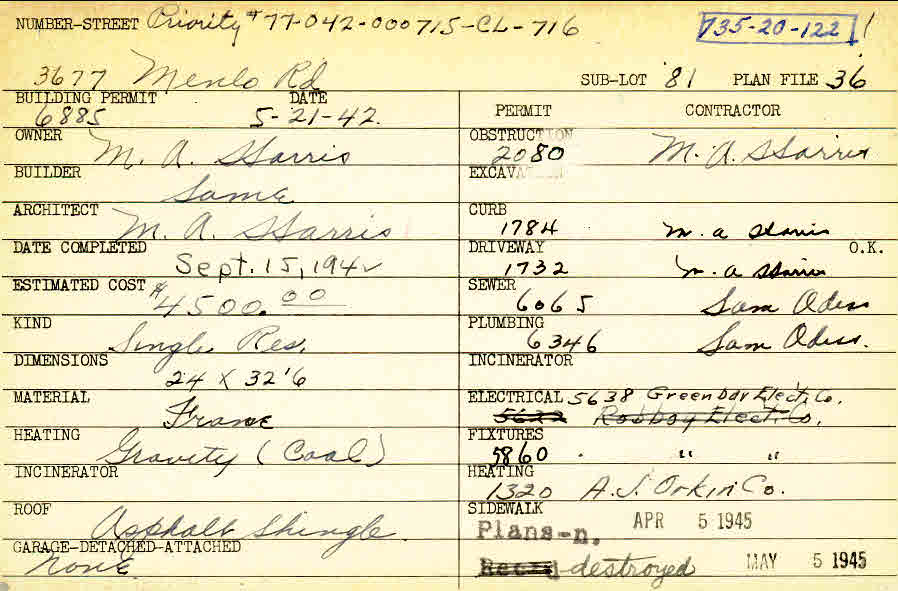 NUMBER-STREET Priority # 77-042-000715-CL-716
735-20-122
3677 Menlo Rd
SUB-LOT 81 PLAN FILE 36
BUILDING PERMIT DATE
6885 5-21-42.
PERMIT CONTRACTOR
OWNER
M. A. Harris
OBSTRUCTION
2080 M. A. Harris
BUILDER
Same
EXCAVATION
ARCHITECT
M. A. Harris
CURB
1784 M. A Harris
DATE COMPLETED
Sept. 15, 1942
DRIVEWAY O.K.
1732 M. A Harris
ESTIMATED COST $4500.00
SEWER
6065 Sam Odess
KIND
Single Res.
PLUMBING
6346 Sam Odess.
DIMENSIONS
24 X 32'6
INCINERATOR
MATERIAL
Frame
ELECTRICAL 5638 Greenbar Elect. Co.
5622 Rosboy Elect. Co.
HEATING
Gravity (Coal)
FIXTURES
5860 " "
INCINERATOR
HEATING
1320 A. J. Orkin Co.
ROOF
Asphalt Shingle.
SIDEWALK
Plans-n. APR 5 1945
GARAGE-DETACHED-ATTACHED
None
destroyed MAY 5 1945